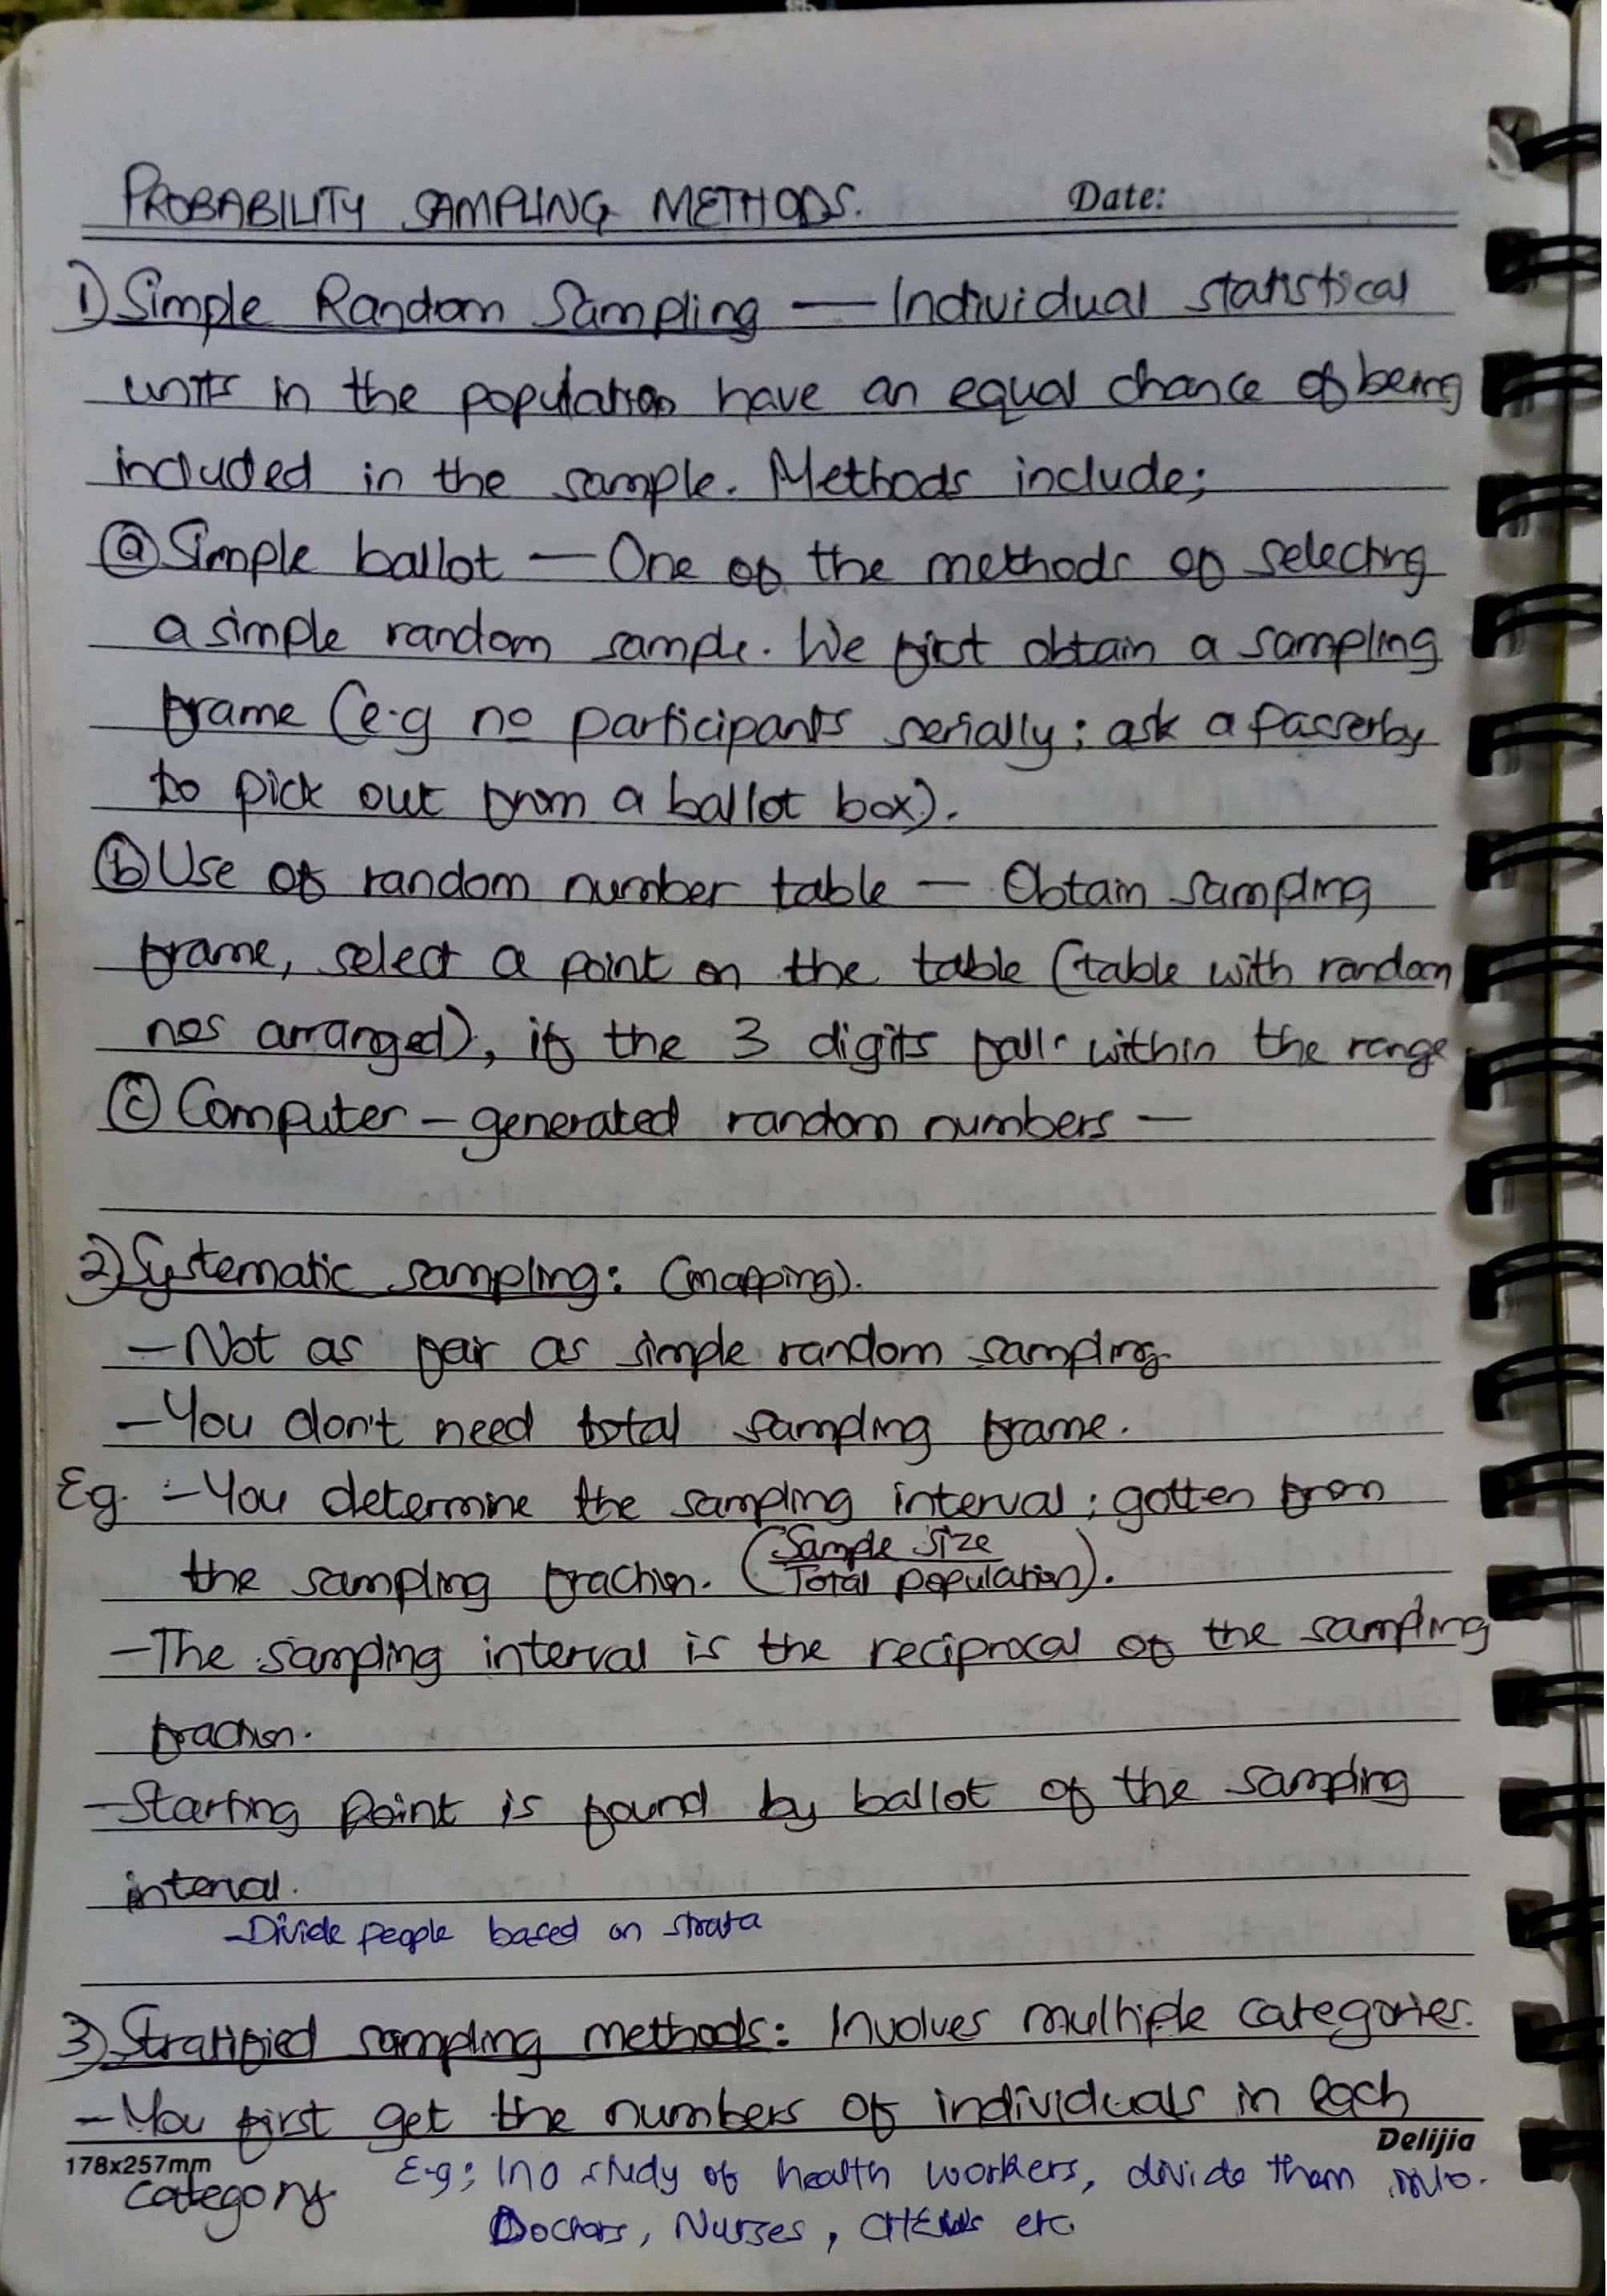 PROBABILITY SAMPLING METHODS. Date:
1) Simple Random Sampling — Individual statistical
units in the population have an equal chance of being
included in the sample. Methods include;
(a) Simple ballot — One of the methods of selecting
a simple random sample. We first obtain a sampling
frame (e.g no participants serially; ask a passerby
to pick out from a ballot box).
(b) Use of random number table — Obtain sampling
frame, select a point on the table (table with random
nos arranged), if the 3 digits fall within the range
(c) Computer - generated random numbers —
2) Systematic sampling: (mapping).
- Not as fair as simple random sampling.
- You don't need total sampling frame.
Eg. - You determine the sampling interval; gotten from
the sampling fraction. (Sample size
Total population).
- The sampling interval is the reciprocal of the sampling
fraction.
- Starting point is found by ballot of the sampling
interval.
- Divide people based on strata
3) Stratified sampling methods: Involves multiple categories.
- You first get the numbers of individuals in each
Delijia
178x257mm
category.
E-g; In a study of health workers, divide them into.
Doctors, Nurses, CHEWs etc